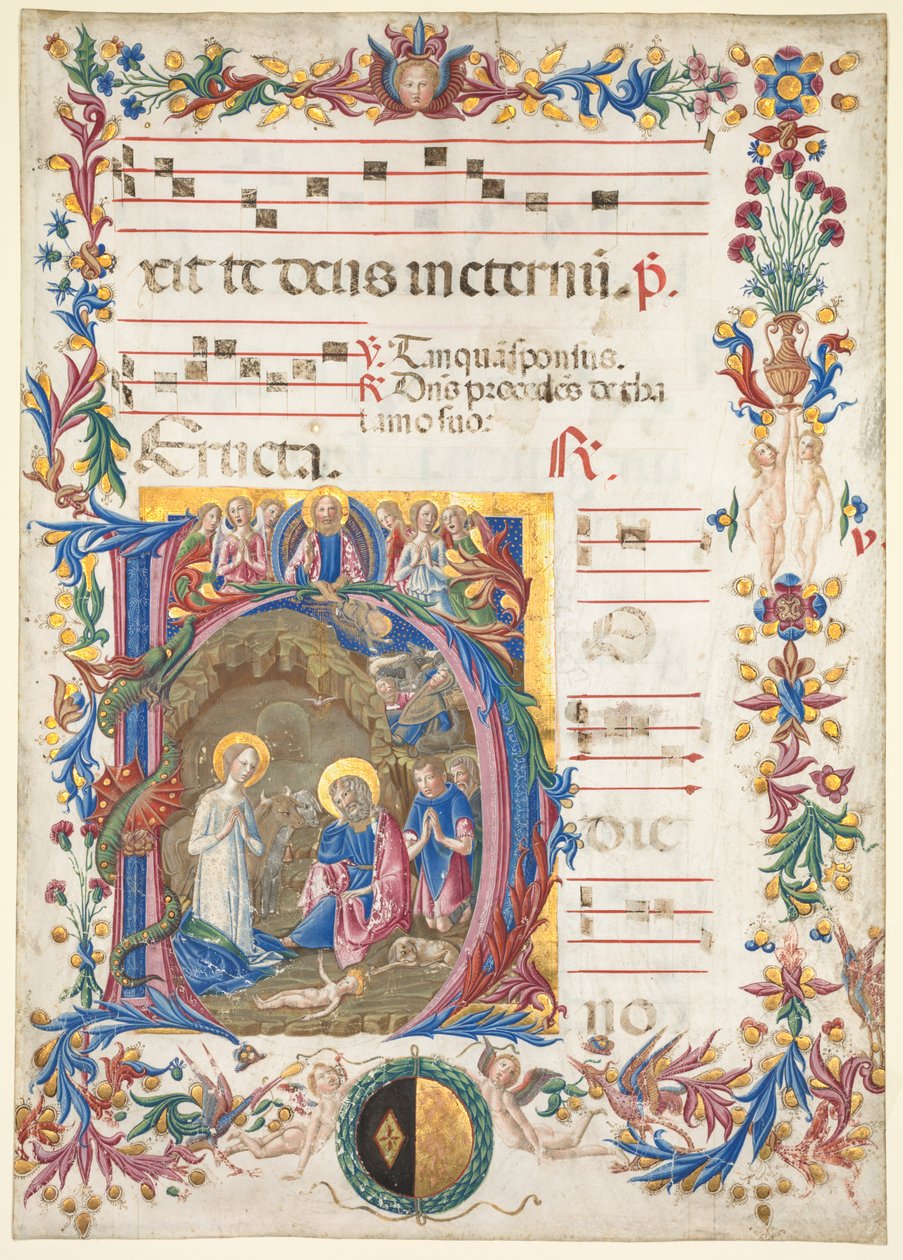 xit te deus in eternū. p̄.
℣. Tanquā sponsus.
℟. Dn̄s procedēs de tha
lamo suo:
Eructa. R.
v.
H O
die
no